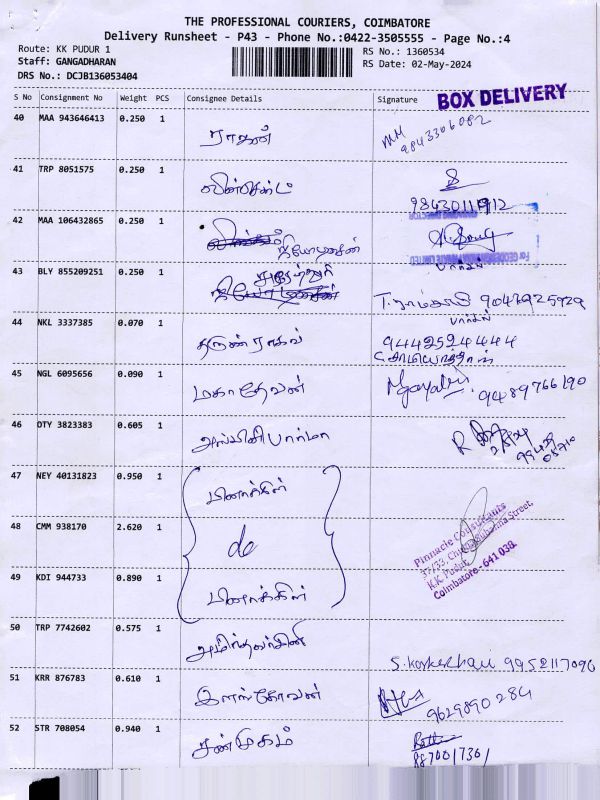 THE PROFESSIONAL COURIERS, COIMBATORE
Delivery Runsheet - P43 - Phone No.:0422-3505555 - Page No.:4
Route: KK PUDUR 1
RS No.: 1360534
Staff: GANGADHARAN
RS Date: 02-May-2024
DRS No.: DCJB136053404
S No Consignment No Weight PCS Consignee Details Signature
BOX DELIVERY
40 MAA 943646413 0.250 1 ராகுல்
9843306082
41 TRP 8051575 0.250 1
9843011912
42 MAA 106432865 0.250 1
43 BLY 855209251 0.250 1
9047925929
44 NKL 3337385 0.070 1 தருண் ராகவ்
9442524444
45 NGL 6095656 0.090 1 மகாதேவன்
9489766190
46 OTY 3823383 0.605 1 அஸ்வினி பார்மா
47 NEY 40131823 0.950 1 பினாக்கிள்
48 CMM 938170 2.620 1 do
Pinnacle Consultants
K.K. Pudur,
Coimbatore - 641 038.
49 KDI 944733 0.890 1 பினாக்கிள்
50 TRP 7742602 0.575 1
9952117096
51 KRR 876783 0.610 1 இளங்கோவன் 9629890284
52 STR 708054 0.940 1 சண்முகம்
8870017301